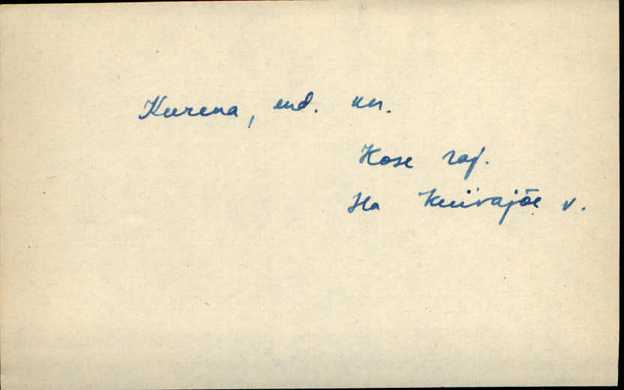 Kurena, end. kn.
Kose raj.
Ha Kuivajõe v.